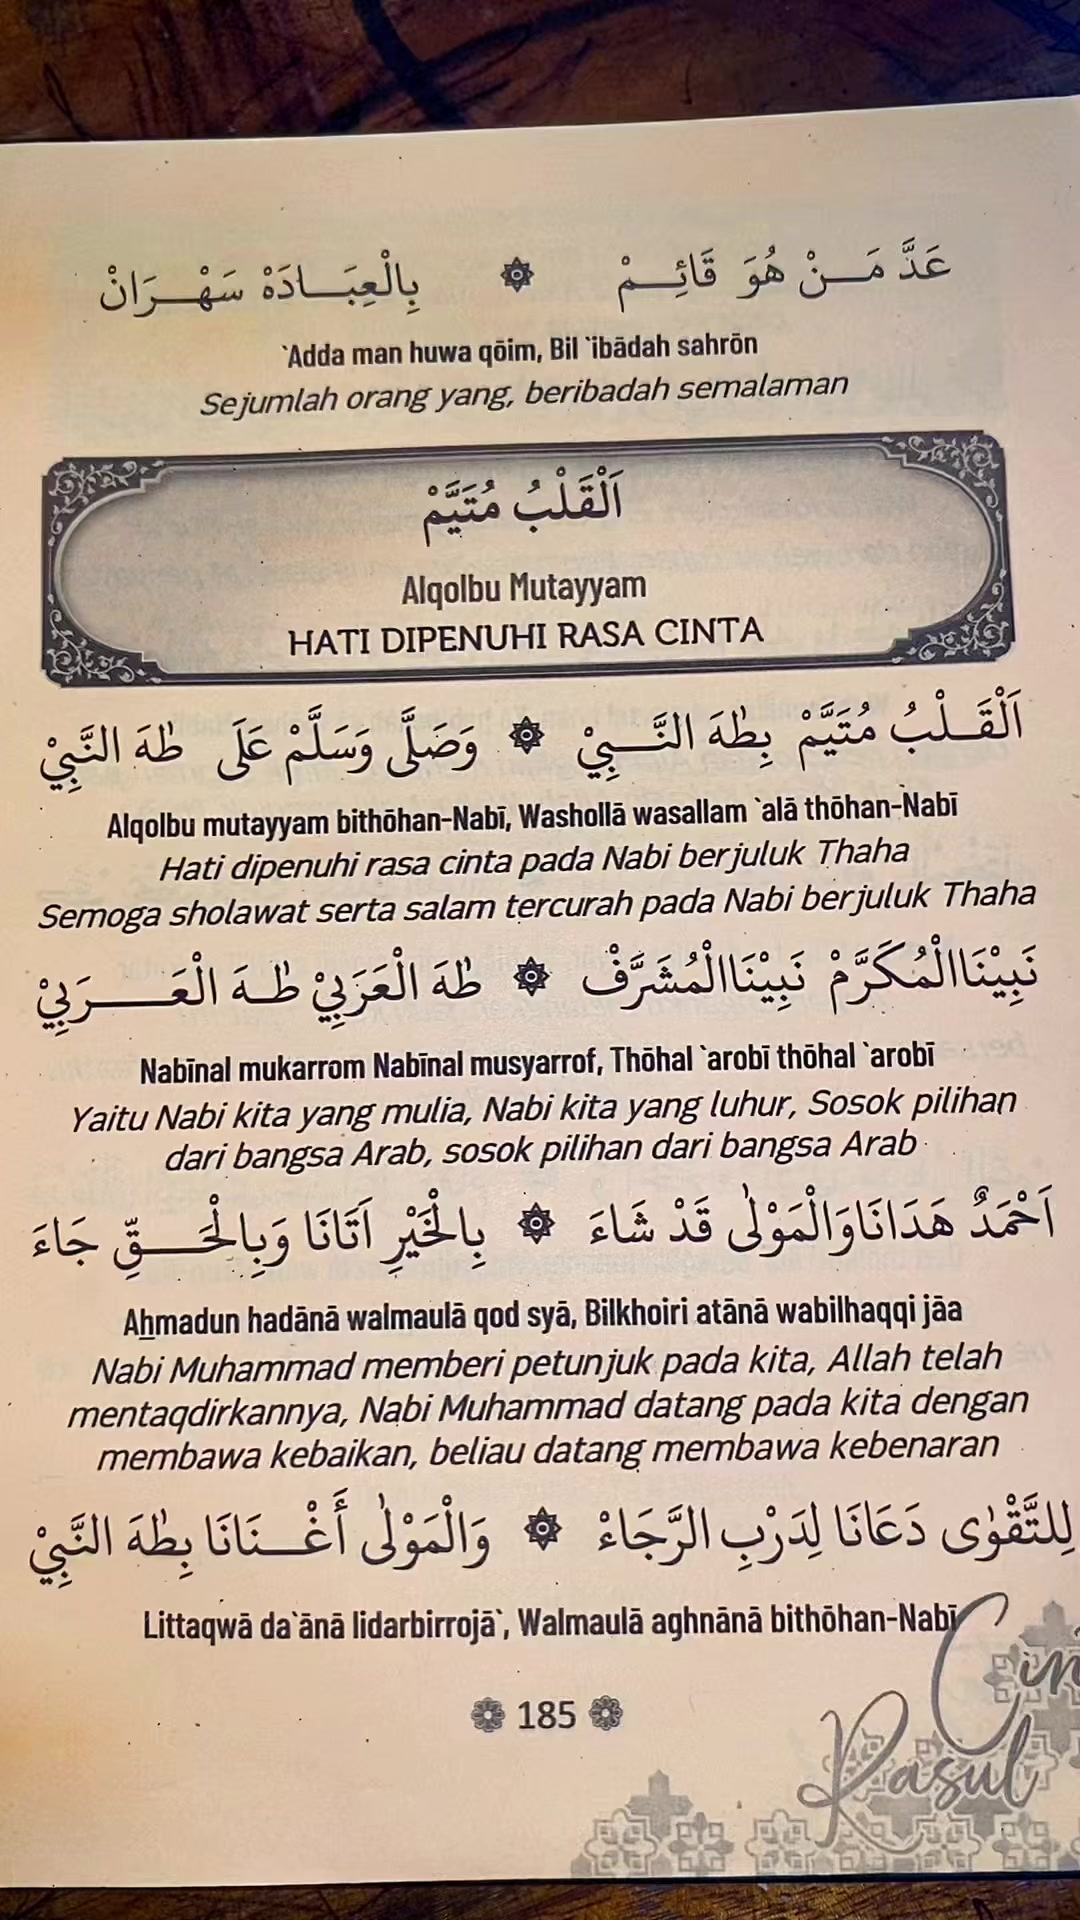 عَدَّ مَـــنْ هُوَ قَائِـــمْ ۞ بِالْعِبَـــادَهْ سَهْـــرَانْ
`Adda man huwa qōim, Bil `ibādah sahrōn
Sejumlah orang yang, beribadah semalaman
اَلْقَلْبُ مُتَيَّمْ
Alqolbu Mutayyam
HATI DIPENUHI RASA CINTA
اَلْقَـــلْبُ مُتَيَّمْ بِطٰهَ النَّـــبِيْ ۞ وَصَلَّى وَسَلَّمْ عَلَى طٰهَ النَّبِيْ
Alqolbu mutayyam bithōhan-Nabī, Washollā wasallam `alā thōhan-Nabī
Hati dipenuhi rasa cinta pada Nabi berjuluk Thaha
Semoga sholawat serta salam tercurah pada Nabi berjuluk Thaha
نَبِيْنَاالْمُكَرَّمْ نَبِيْنَاالْمُشَرَّفْ ۞ طٰهَ الْعَرَبِيْ طٰـهَ الْعَـــرَبِيْ
Nabīnal mukarrom Nabīnal musyarrof, Thōhal `arobī thōhal `arobī
Yaitu Nabi kita yang mulia, Nabi kita yang luhur, Sosok pilihan
dari bangsa Arab, sosok pilihan dari bangsa Arab
اَحْمَدٌ هَدَانَاوَالْمَوْلٰى قَدْ شَاءَ ۞ بِالْخَيْرِ اَتَانَا وَبِالْحَـــقِّ جَاءَ
Aẖmadun hadānā walmaulā qod syā, Bilkhoiri atānā wabilhaqqi jāa
Nabi Muhammad memberi petunjuk pada kita, Allah telah
mentaqdirkannya, Nabi Muhammad datang pada kita dengan
membawa kebaikan, beliau datang membawa kebenaran
لِلتَّقْوٰى دَعَانَا لِدَرْبِ الرَّجَاءْ ۞ وَالْمَوْلٰى أَغْـــنَانَا بِطٰهَ النَّبِيْ
Littaqwā da`ānā lidarbirrojā`, Walmaulā aghnānā bithōhan-Nabī
185
Rasul